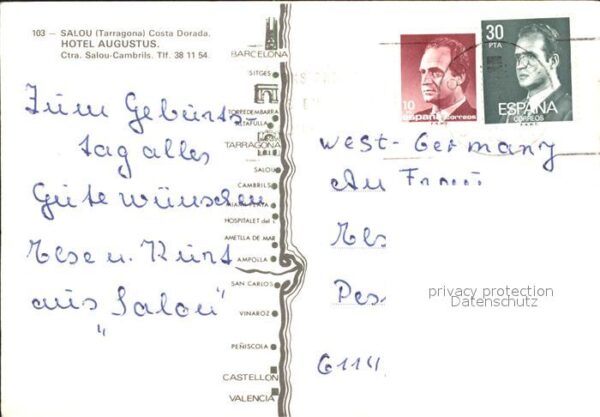 103 — SALOU (Tarragona) Costa Dorada.
HOTEL AUGUSTUS.
Ctra. Salou-Cambrils. Tlf. 38 11 54.
Zum Geburts-
tag alles
Gute wünschen
Else u. Kurt
aus "Salou"
BARCELONA
SITGES
TORREDEMBARRA
ALTAFULLA
TARRAGONA
SALOU
CAMBRILS
MIAMI PLAYA
HOSPITALET del I.
AMETLLA DE MAR
AMPOLLA
SAN CARLOS
VINAROZ
PEÑISCOLA
CASTELLON
VALENCIA
10
españa correos
30
PTA
ESPAÑA
CORREOS
West-Germany
An
Els
Pes
6114
privacy protection
Datenschutz